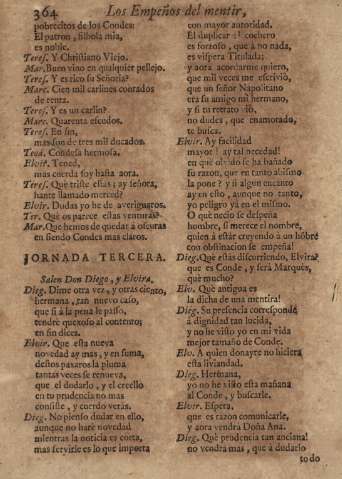 364
Los Empeños del mentir,
pobrecitos de los Condes:
El patron, silbola mia,
es noble.
Teres. Y Christiano Viejo.
Mar. Buen vino en qualquier pellejo.
Teres. Y es rico su Señoria?
Marc. Cien mil carlines contados
de renta.
Teres. Y es un carlin?
Marc. Quarenta escudos.
Teres. En fin,
mas son de tres mil ducados.
Teod. Condesa hermosa.
Elvir. Tened,
mas cuerda soy hasta aora.
Teres. Què triste estàs! ay señora,
hante llamado merced?
Elvir. Dudas yo he de averiguaros.
Ter. Què os parece estas venturas?
Mar. Que hemos de quedar à obscuras
en siendo Condes mas claros.
JORNADA TERCERA.
Salen Don Diego, y Elvira.
Dieg. Dime otra vez, y otras ciento,
hermana, tan nuevo caso,
que si à la pena le passo,
tendrè quexoso al contento;
en fin dices.
Elvir. Que esta nueva
novedad ay mas, y en suma,
destos paxaros la pluma
tantas veces se renueva,
que el dudarlo, y el creello
en tu prudencia no mas
consiste, y cuerdo veràs.
Dieg. No pienso dudar en ello,
aunque no harè novedad
mientras la noticia es corta,
mas servirle es lo que importa
con mayor autoridad.
El duplicar el cochero
es forzoso, que à no nada,
es vispera Titulada;
y aora acordarme quiero,
que mil veces me escriviò,
que un señor Napolitano
era su amigo mi hermano,
y si tu retrato viò,
no dudes, que enamorado,
te busca.
Elvir. Ay facilidad
mayor! ay tal necedad!
en què olvido se ha bañado
su razon, que en tanto abismo
la pone? y si algun encanto
ay en esto, aunque no tanto,
yo peligro yà en el mismo.
O què necio se despeña
hombre, si merece el nombre,
quien à estàr creyendo à un hõbre
con obstinacion se empeña!
Dieg. Què estàs discurriendo, Elvira?
que es Conde, y serà Marquès,
què mucho?
Elv. Què antigua es
la dicha de una mentira!
Dieg. Su presencia corresponde
à dignidad tan lucida,
y no he visto yo en mi vida
mejor tamaño de Conde.
Elv. A quien donayre no hiciera
esta liviandad.
Dieg. Hermana,
yo no he visto esta mañana
al Conde, y buscarle.
Elvir. Espera,
que es razon comunicarle,
y aora vendrà Doña Ana.
Dieg. Què prudencia tan anciana!
no vendrà mas, que à dudarlo
todo